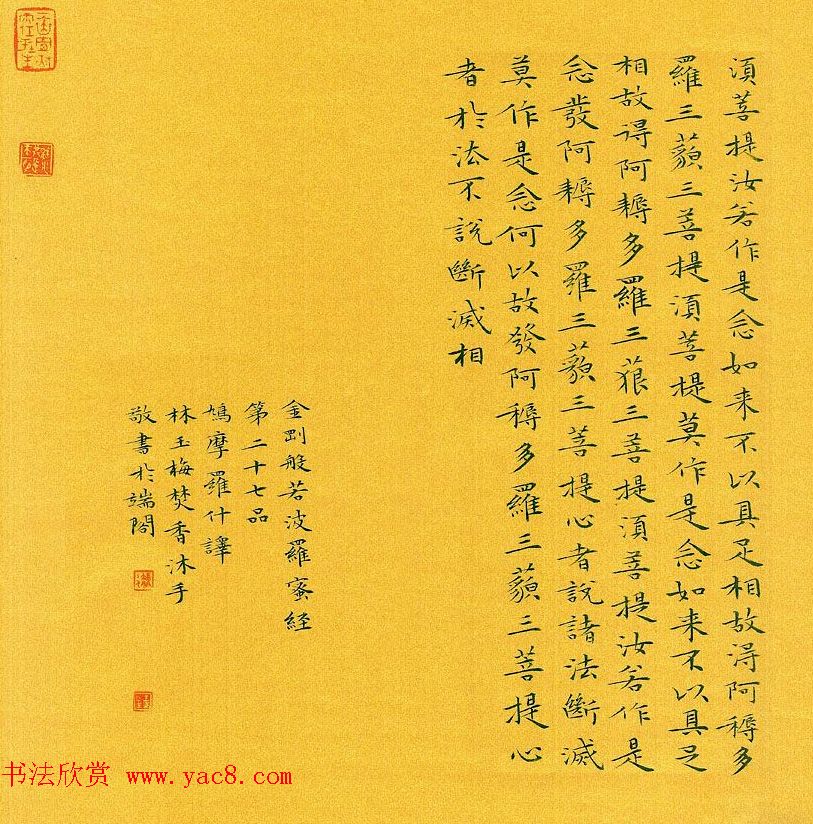 湏菩提汝若作是念如来不以具足相故淂阿耨多
羅三藐三菩提湏菩提莫作是念如来不以具足
相故淂阿耨多羅三藐三菩提湏菩提汝若作是
念發阿耨多羅三藐三菩提心者說諸法斷滅
莫作是念何以故發阿耨多羅三藐三菩提心
者於法不說斷滅相
金剛般若波羅蜜経
第二十七品
鳩摩羅什譯
林玉梅焚香沐手
敬書於端閣
书法欣赏 www.yac8.com